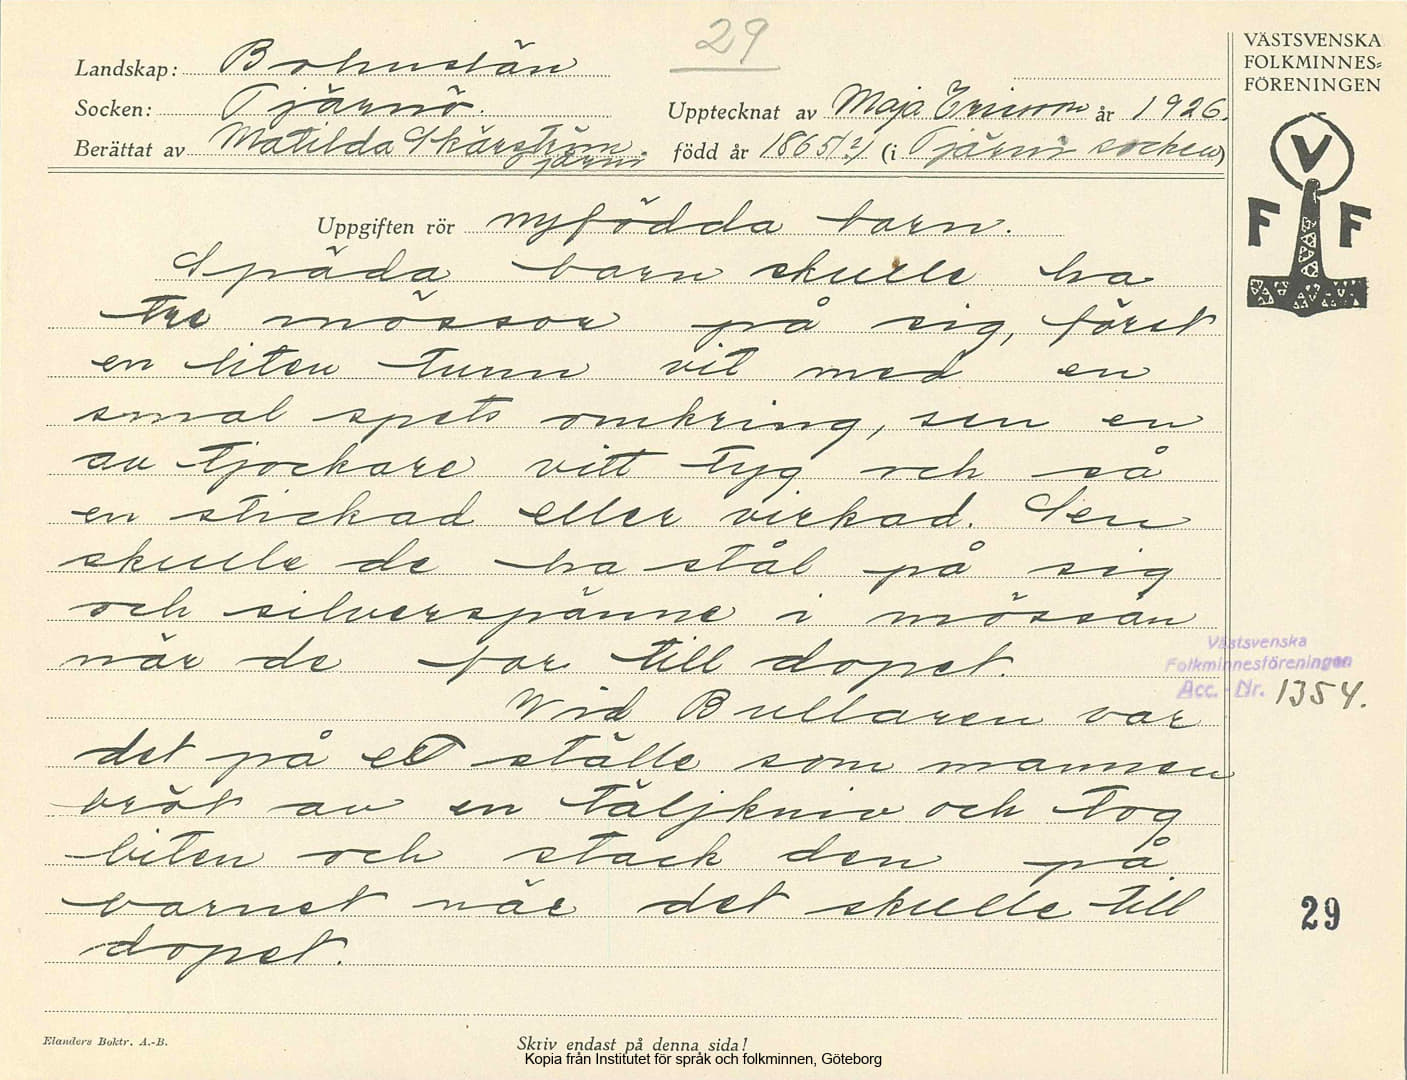 29
VÄSTSVENSKA
FOLKMINNES=
FÖRENINGEN
V
F F
Landskap: Bohuslän
Socken: Tjärnö. Upptecknat av Maja Ericson år 1926.
Berättat av Matilda Skärström född år 1865(?) (i Tjärnö socken)
Tjärnö
Uppgiften rör nyfödda barn.
Späda barn skulle ha
tre mössor på sig, först
en liten tunn vit med en
smal spets omkring, sen en
av tjockare vitt tyg och så
en stickad eller virkad. Sen
skulle de ha stål på sig
och silverspänne i mössan
när de for till dopet.
Västsvenska
Folkminnesföreningen
Acc. - Nr. 1354.
Wid Bullaren var
det på ett ställe som mannen
bröt av en täljkniv och tog
biten och stack den på
barnet när det skulle till
dopet.
29
Elanders Boktr. A.-B.
Skriv endast på denna sida!
Kopia från Institutet för språk och folkminnen, Göteborg